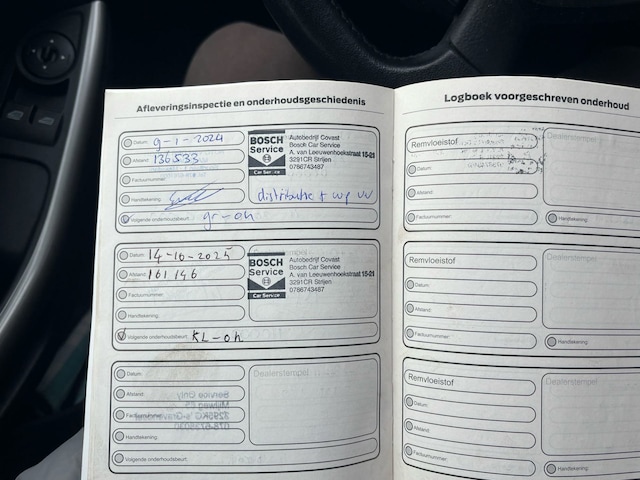 Afleveringsinspectie en onderhoudsgeschiedenis
Datum: 9-1-2024
Afstand: 136533
Factuurnummer:
Handtekening:
Volgende onderhoudsbeurt: gr-oh
BOSCH
Service
Car Service
Autobedrijf Covast
Bosch Car Service
A. van Leeuwenhoekstraat 15-21
3291CR Strijen
0786743487
distributie + wp vv
Datum: 14-10-2025
Afstand: 161146
Factuurnummer:
Handtekening:
Volgende onderhoudsbeurt: KL-oh
BOSCH
Service
Car Service
Autobedrijf Covast
Bosch Car Service
A. van Leeuwenhoekstraat 15-21
3291CR Strijen
0786743487
Datum:
Afstand:
Factuurnummer:
Handtekening:
Volgende onderhoudsbeurt:
Dealerstempel:
Logboek voorgeschreven onderhoud
Remvloeistof
Datum:
Afstand:
Factuurnummer:
Dealerstempel:
Handtekening:
Remvloeistof
Datum:
Afstand:
Factuurnummer:
Dealerstempel:
Handtekening:
Remvloeistof
Datum:
Afstand:
Factuurnummer:
Dealerstempel:
Handtekening: